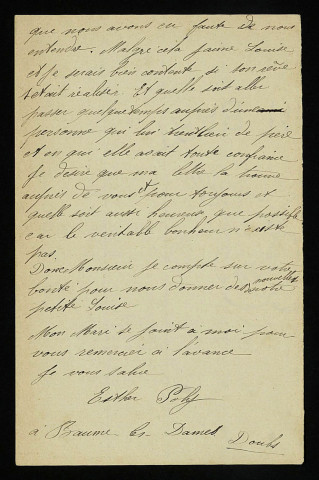 que nous avons eu faute de nous
entendre. Malgré cela j'aime Louise
et je serais bien contente si son rêve
setait réaliser. Et quelle soit aller
passer quelque temps auprès d'une
personne qui lui tient lieu de pere
et en qui elle avait toute confiance
Je désire que ma lettre la trouve
auprès de vous et pour toujours et
quelle soit autre heureuse que possible
car le veritable bonheur n'existe
pas.
Donc Monsieur je compte sur votre
bonté pour nous donner des nouvelles de notre
petite Louise
Mon Mari se joint à moi pour
vous remercier à l'avance
Je vous salue
Esther
à Baume les Dames
Doubs